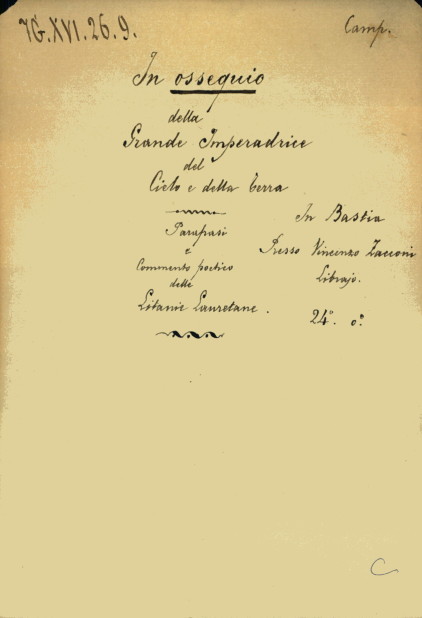 7G.XVI.26.9.
Camp.
In ossequio
della
Grande Imperadrice
del
Cielo e della Terra
Parafrasi
e
Commento poetico
delle
Litanie Lauretane.
In Bastia
Presso Vincenzo Zacconi
Librajo.
24°. o°.
C